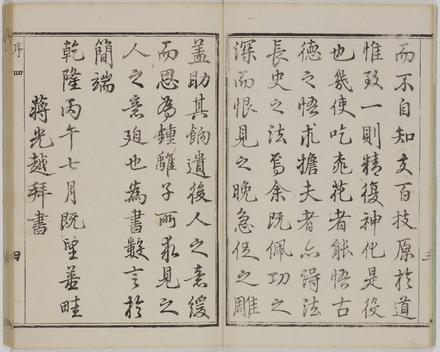 而不自知夫百技原於道
惟致一則精復神化是役
也幾使吃花者能悟古
德之悟求擔夫者亦得法
長史之法焉余既佩功之
深而恨見之晚急促之雕
三
蓋助其餉遺後人之意緩
而思為鍾離子所求見之
人之意廹也為書數言於
簡端
乾隆丙午七月既望善畦
蔣光越拜書
序四
四